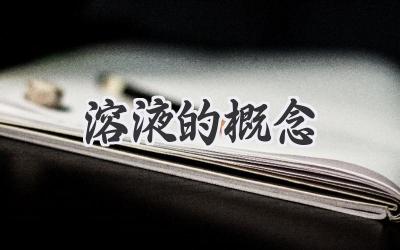 溶液的概念